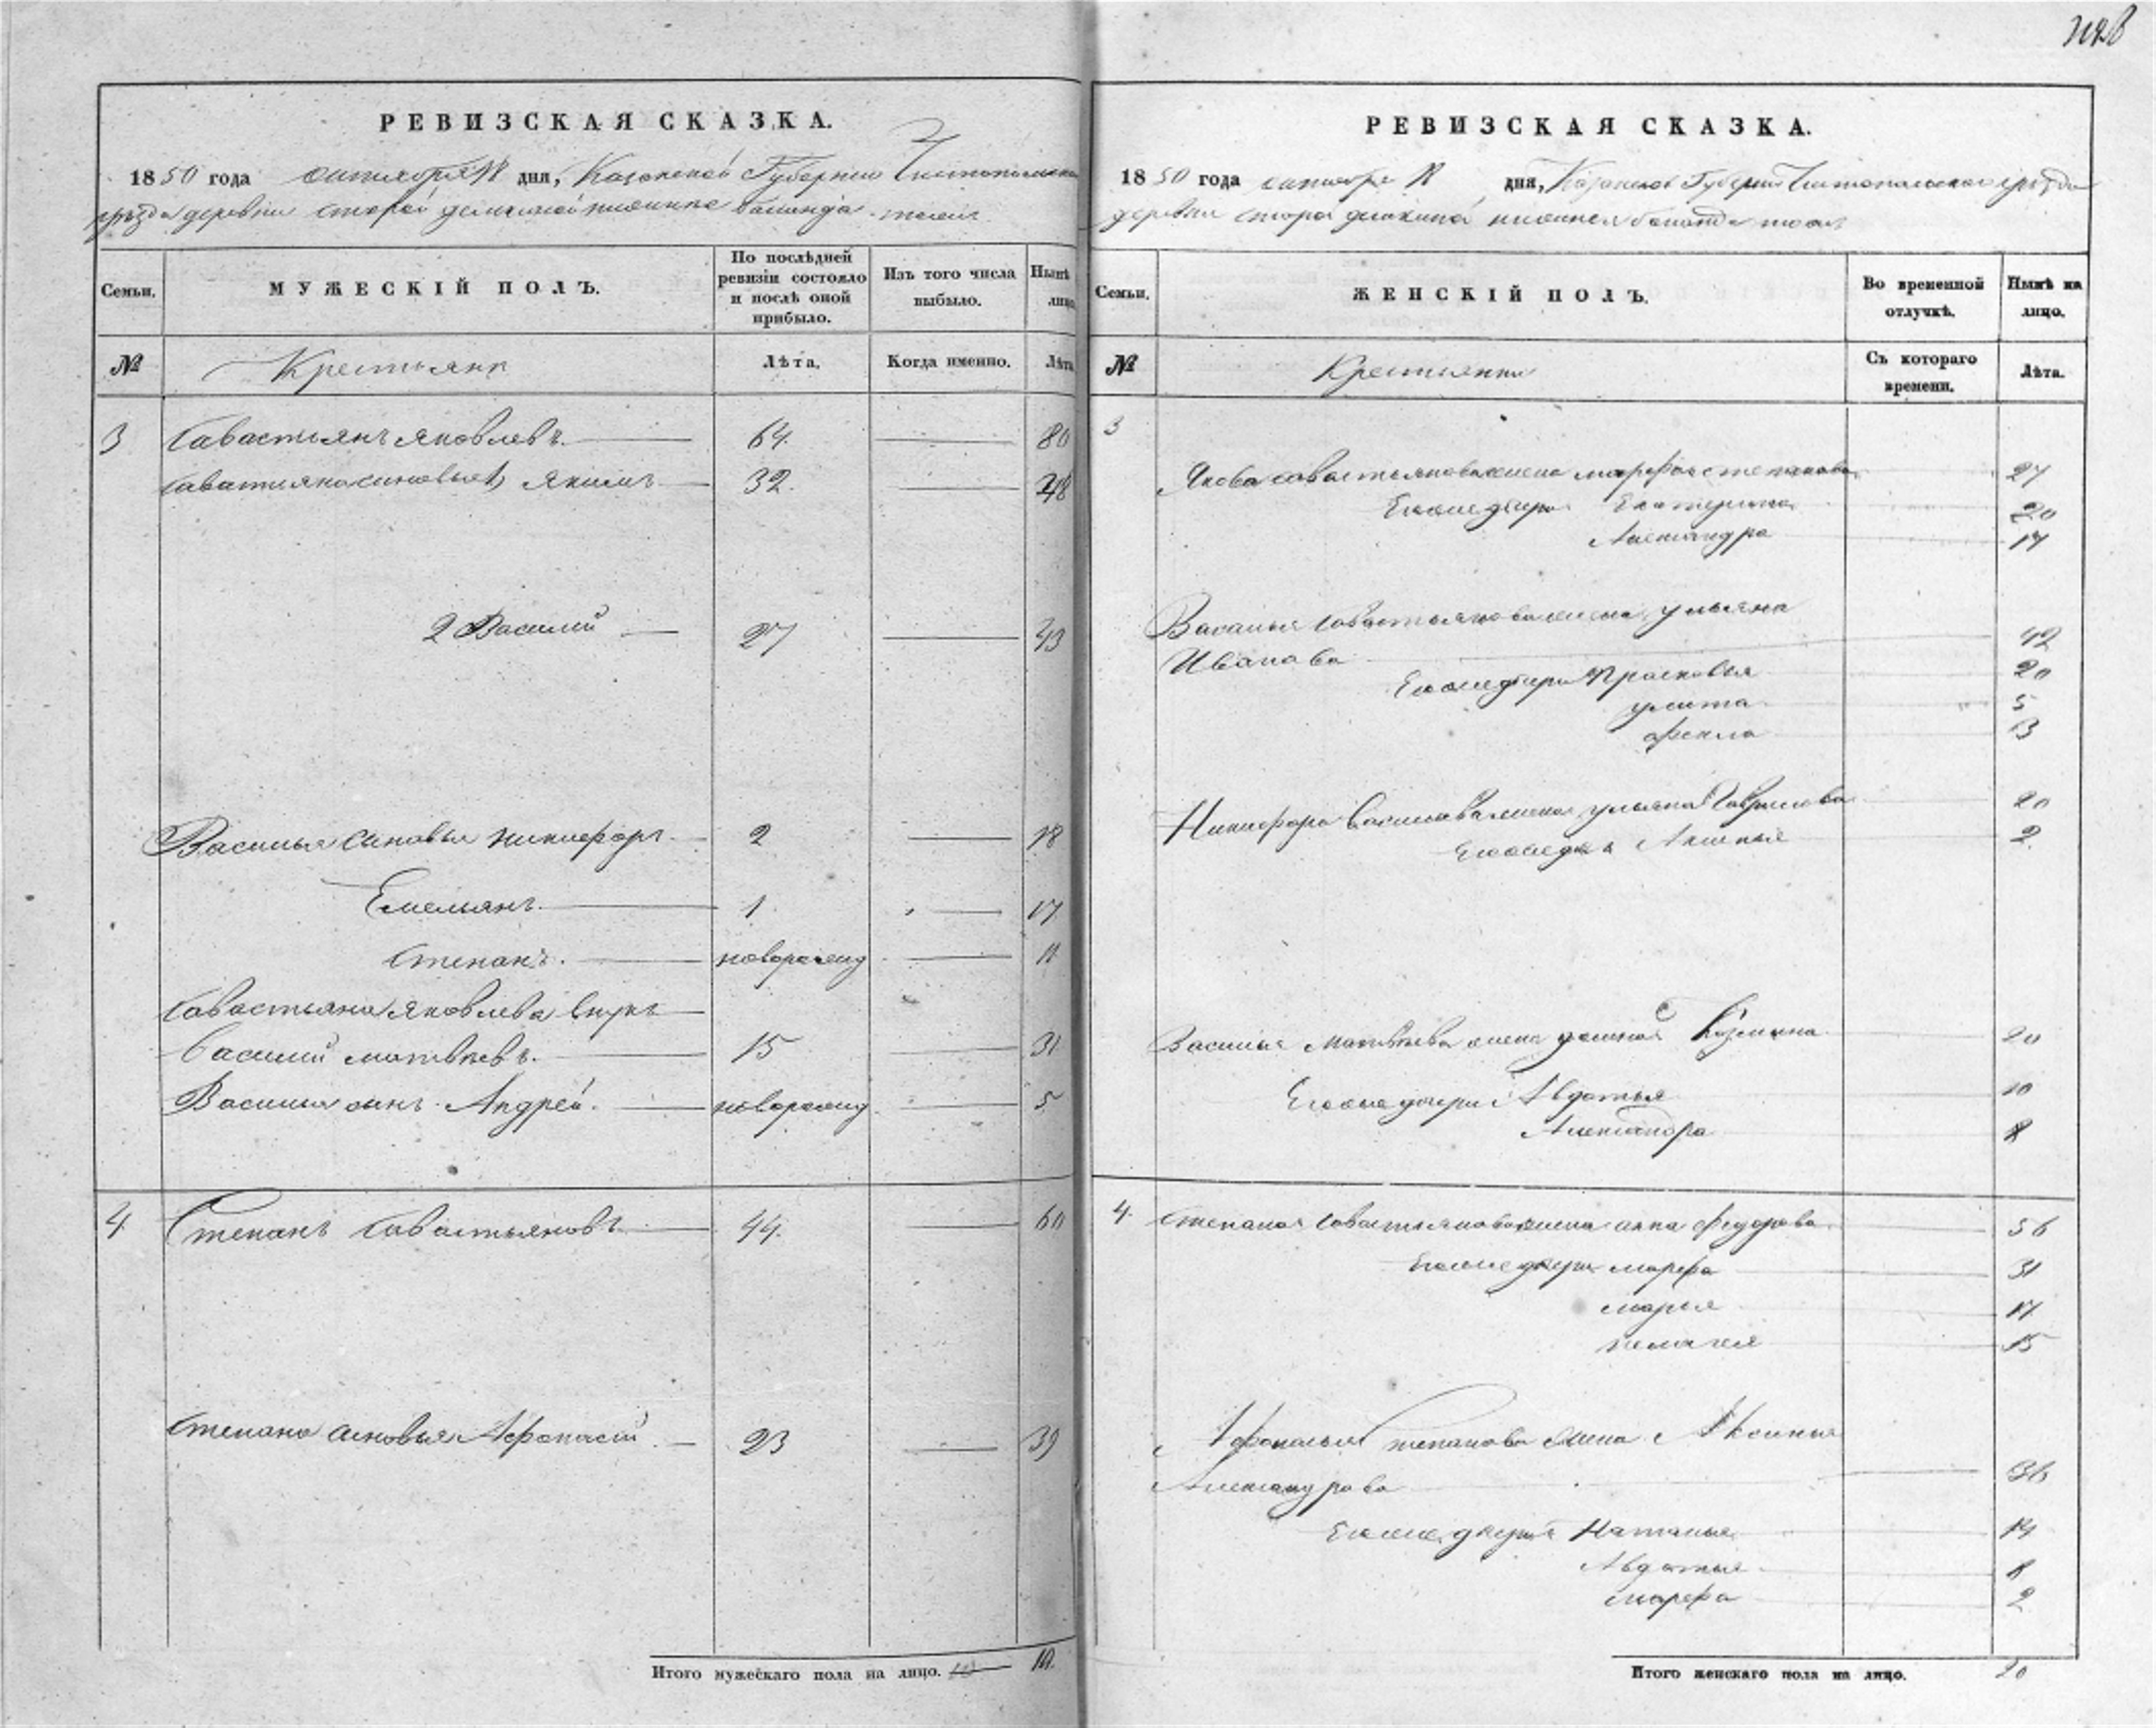 РЕВИЗСКАЯ СКАЗКА.
1850 года октября 18 дня, Казанской Губернии Чистопольскаго
уѣзда деревни старой тожъ
Семьи.
МУЖЕСКІЙ ПОЛЪ.
По послѣдней ревизіи состояло и послѣ оной прибыло.
Изъ того числа выбыло.
Нынѣ лицо
№
Крестьяне
Лѣта.
Когда именно.
Лѣта
3 Савастьянъ Яковлевъ. 64. 80
Савастьяна сыновья 1, Якимъ 32. 48
2 Василий 27 43
Василья сыновья Никифоръ 2 18
Емельянъ. 1. 17
Степанъ. новорожд 11
Савастьяна Яковлева внукъ
Василий Матвѣевъ. 15 31
Василья сынъ Андрей. новорожд 5
4. Степанъ Савастьяновъ 44. 60
Степана сыновья Афонасий 23 39
Итого мужескаго пола на лицо. 10.
РЕВИЗСКАЯ СКАЗКА.
1850 года октября 18 дня, Казанской Губернии Чистопольскаго уѣзда
деревни старой тожъ
Семьи.
ЖЕНСКІЙ ПОЛЪ.
Во временной отлучкѣ.
Нынѣ на лицо.
№
Крестьянки
Съ котораго времени.
Лѣта.
3
савастьянова жена марфа степанова 27
Его же дочери Екатерина 20
Александра 14
Василья Савастьянова жена ульяна
Иванова 42
Его же дочери Прасковья 20
улита 5
Фекла 13
Никифора Васильева жена ульяна Гаврилова 20
Его же дочь 2.
Василья Матвѣева жена Козмина 20
Его же дочери Авдотья 10
Александра 8
4. Степана Савастьянова жена анна Федорова 56
Его же дочери марфа 31
марья 17
пелагея 15
Афонасья Степанова жена Аксинья
Александрова 36
Его же дочери Наталья 14
Авдотья 8
марфа 2
Итого женскаго пола на лицо. 20